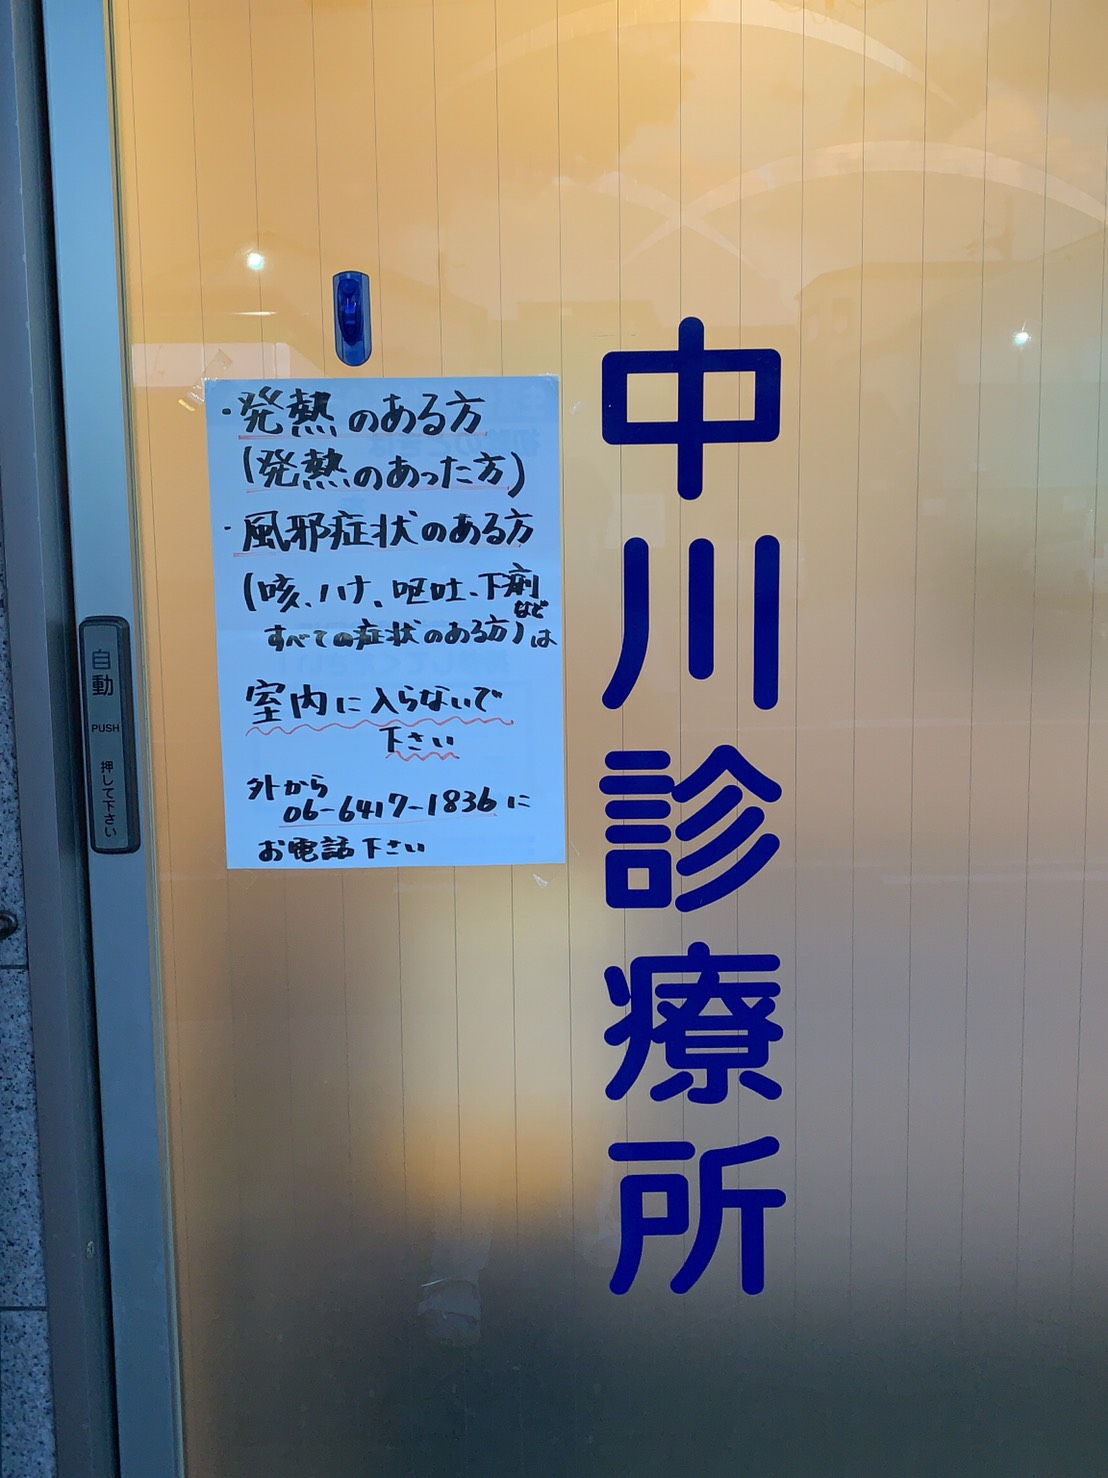 ・発熱のある方
(発熱のあった方)
・風邪症状のある方
(咳、ハナ、呕吐、下痢
など
すべての症状のある方)は
室内に入らないで
下さい
外から
06-6417-1836に
お電話下さい
中川診療所
自動
PUSH
押して下さい